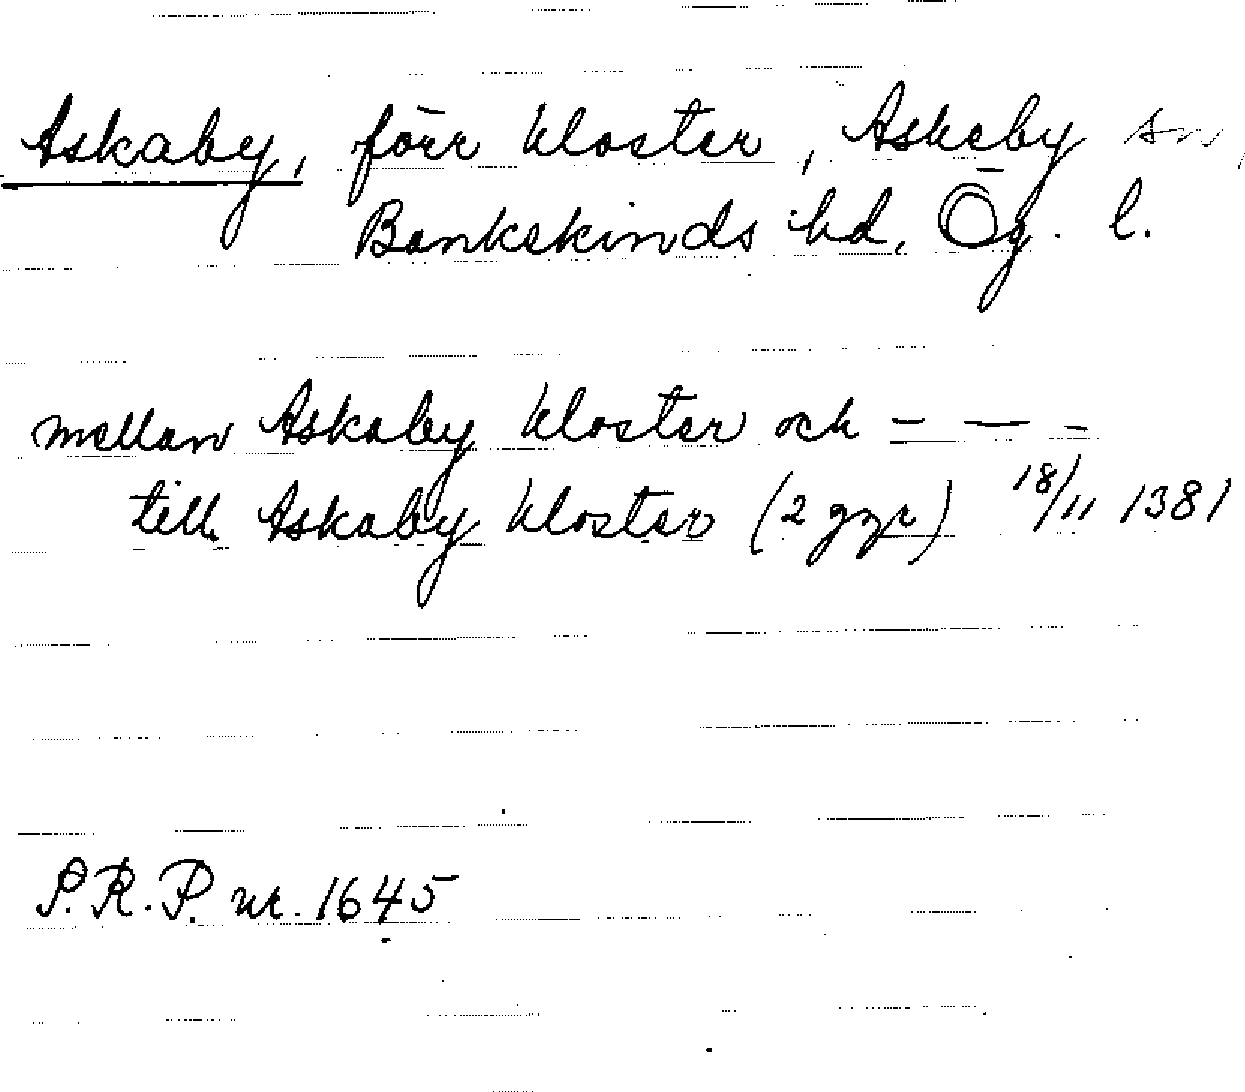 Askaby, förr kloster, Askeby sn,
Bankekinds hd, Ög. l.
mellan Askaby kloster och – — –
till Askaby kloster (2 ggr) 18/11 1381
P.R.P. nr. 1645